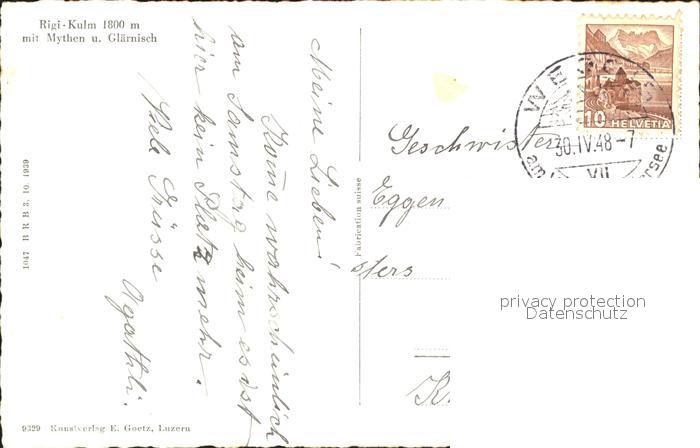 Rigi-Kulm 1800 m
mit Mythen u. Glärnisch
1047 B R B 3. 10. 1939
9329 Kunstverlag E. Goetz, Luzern
Fabrication suisse
Meine Lieben!
Kome wahrscheinlich
am Samstag heim es ist
hier kein Platz mehr.
Viele Grüsse
Agathli.
10 HELVETIA
30.IV.48-7
am
ersee
VII
Geschwister
Eggen
sters
K
privacy protection
Datenschutz